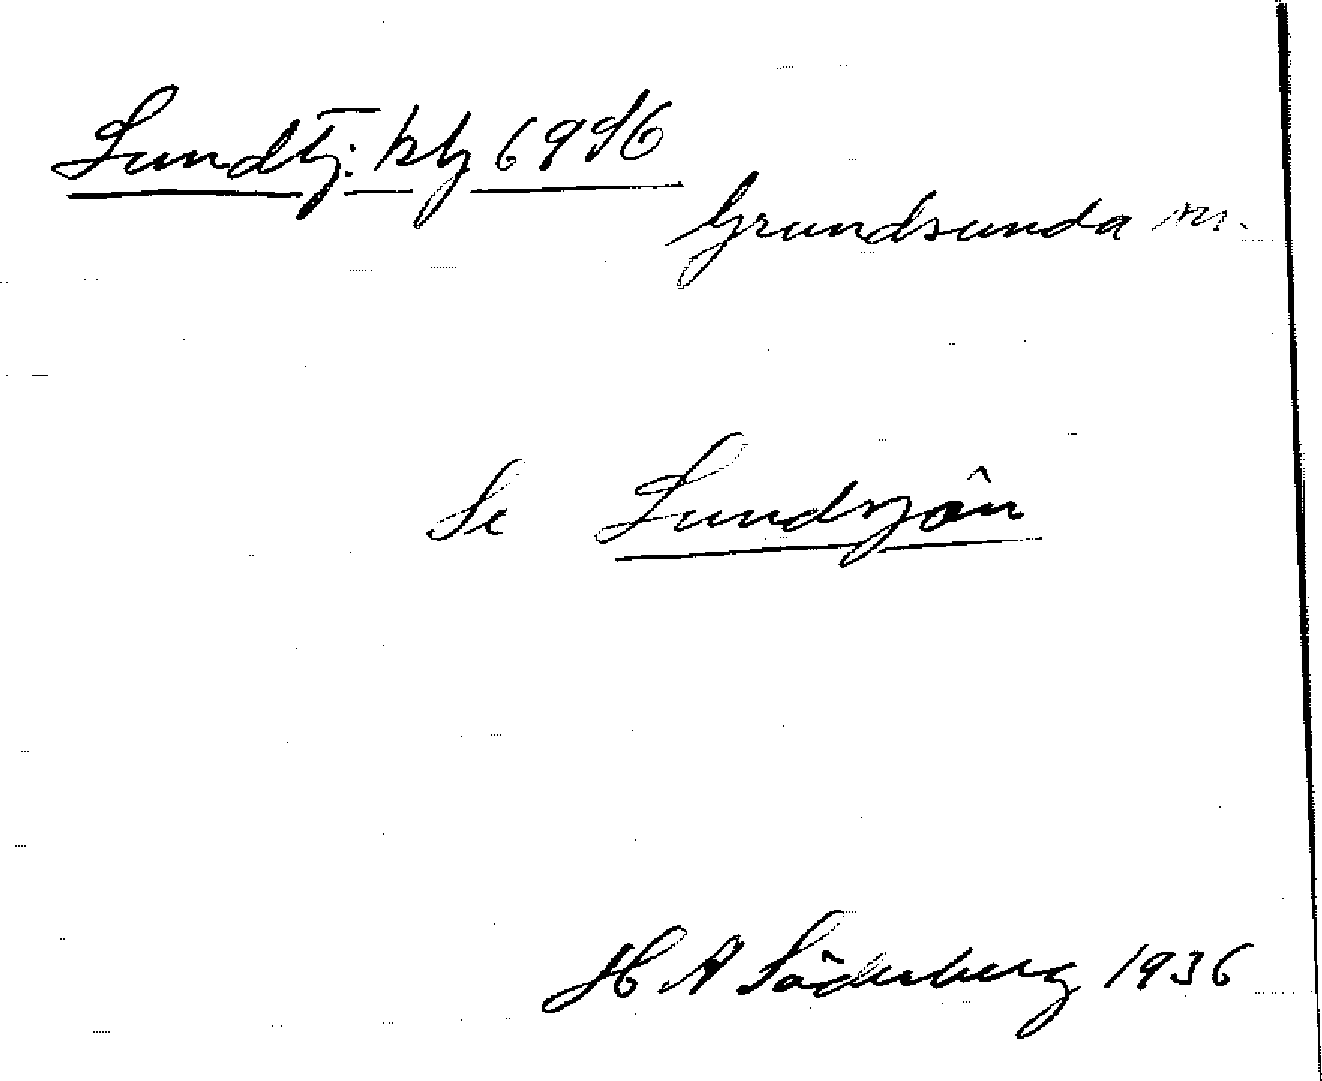 Lundtj: ktj 6996
Grundsunda sn.
Se Lundsjön
H A Söderberg 1936